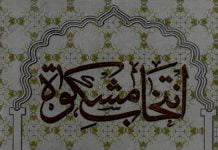 انتخاب مشکوٰۃ